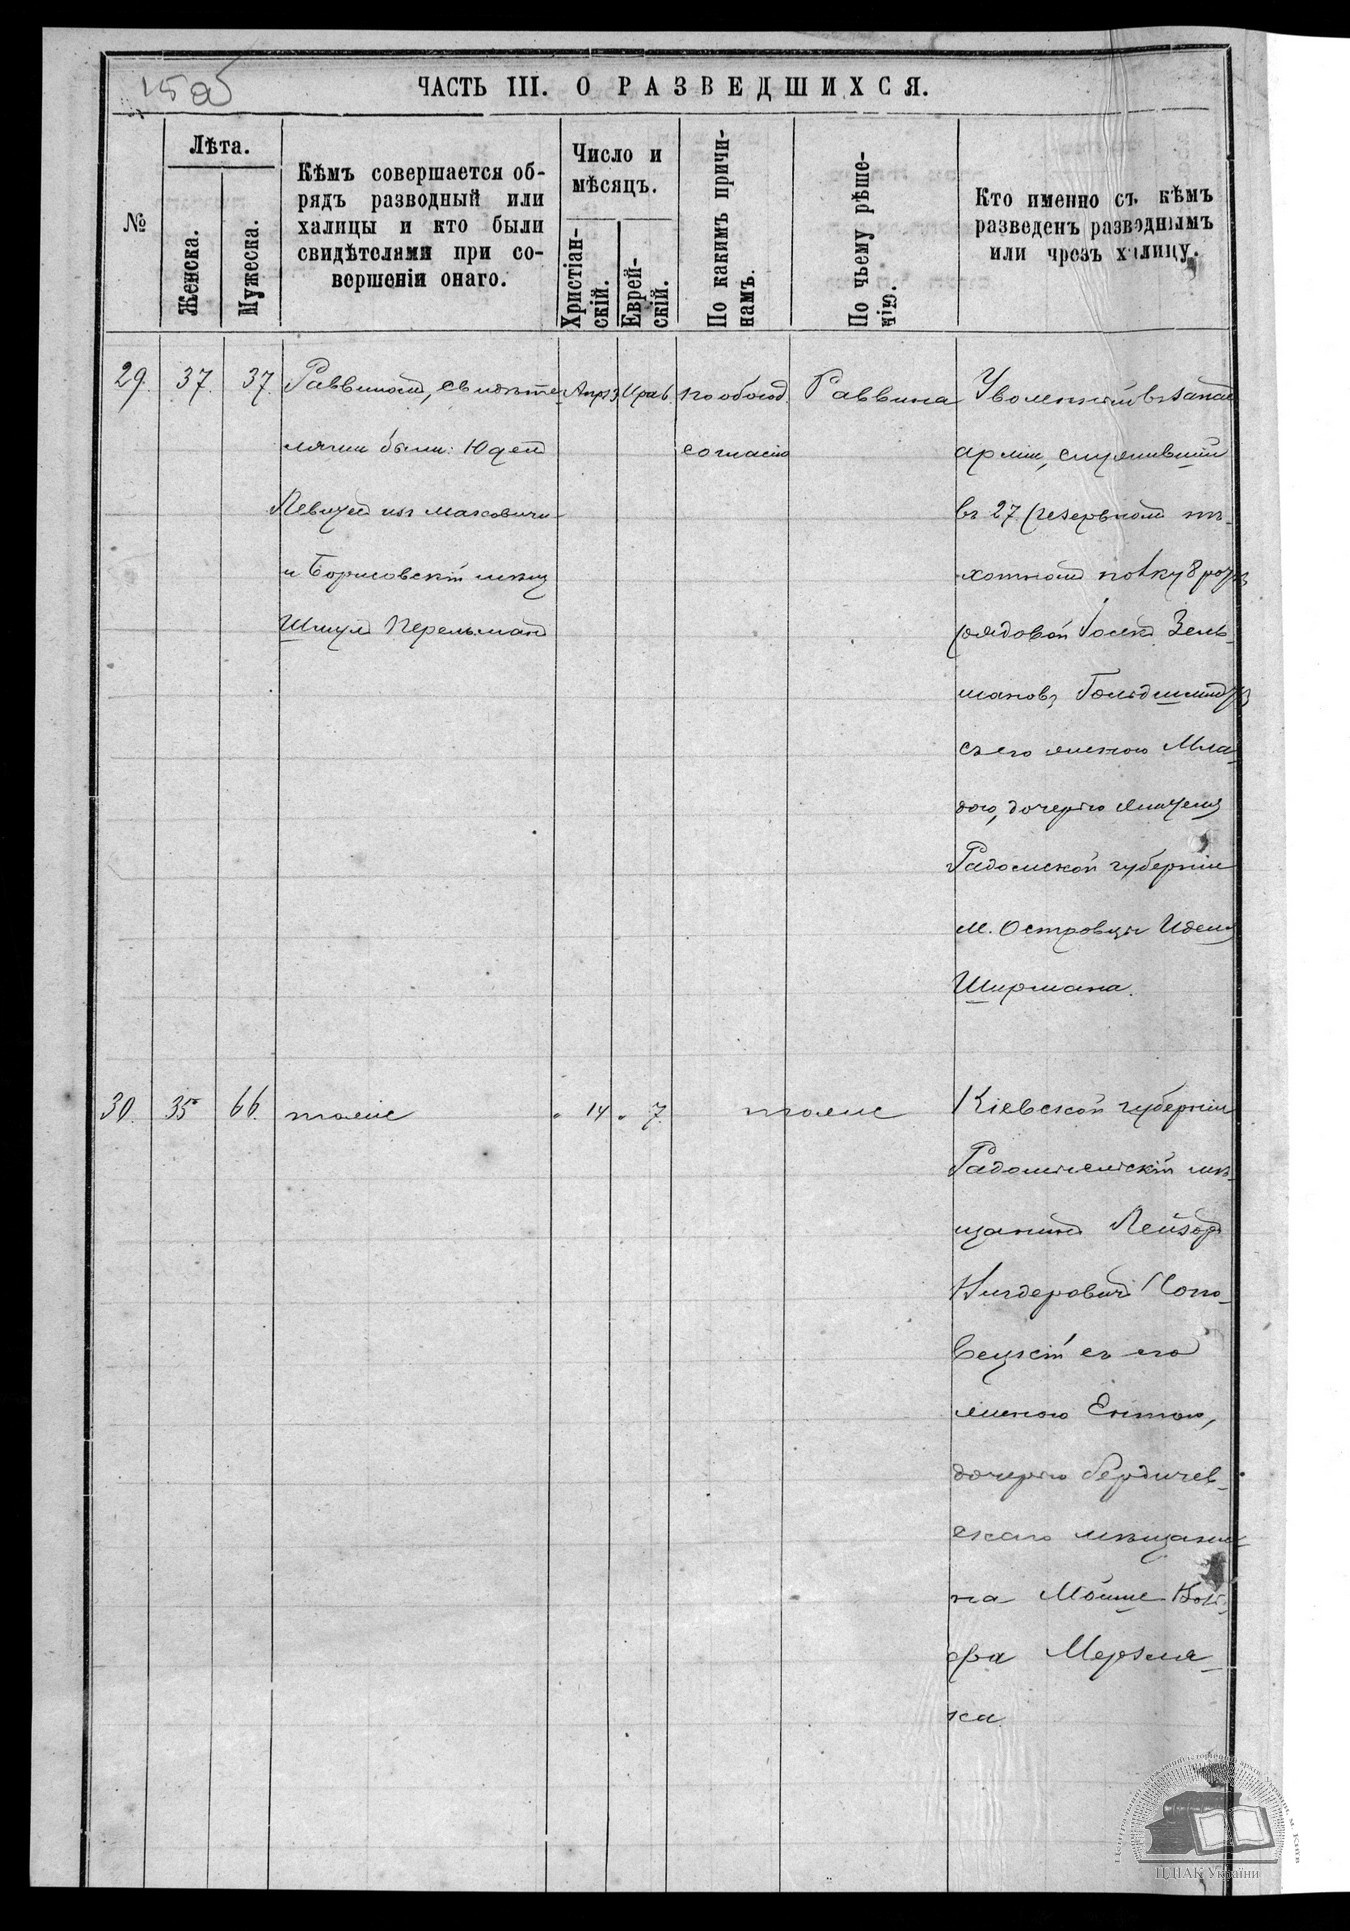 ЧАСТЬ III. О РАЗВЕДШИХСЯ.
№
Лѣта.
Женска.
Мужеска.
Кѣмъ совершается об-
рядъ разводный или
халицы и кто были
свидѣтелями при со-
вершеніи онаго.
Число и
мѣсяцъ.
Христіан-
скій.
Еврей-
скій.
По какимъ причи-
намъ.
По чьему рѣше-
нію.
Кто именно съ кѣмъ
разведенъ разводнымъ
или чрезъ халицу.
29. 37. 37.
Раввиномъ, свидѣте-
лями были: Юдель
и Борисовскій мѣщ
Шмулъ Перельманъ
по обоюд.
согласію
Раввина
Уволенный въ запасъ
арміи, служившій
въ 27 резервномъ пѣ-
хотномъ полку 8 роты
рядовой Іосекъ Зель-
мановъ Гольдшмидтъ
съ его женою Мла-
дою, дочерью жителя
Радомской губерніи
м. Островцы Иделя
Ширмана.
30. 35 66.
тоже
" 14 " 7.
тоже
Кіевской губерніи
Радомысльскій мѣ-
щанинъ Лейзоръ
вецкій съ его
женою Ентою,
дочерью бердичев-
скаго мѣщани-
на Мойше
Мерзля-
ка
ЦДІАК України